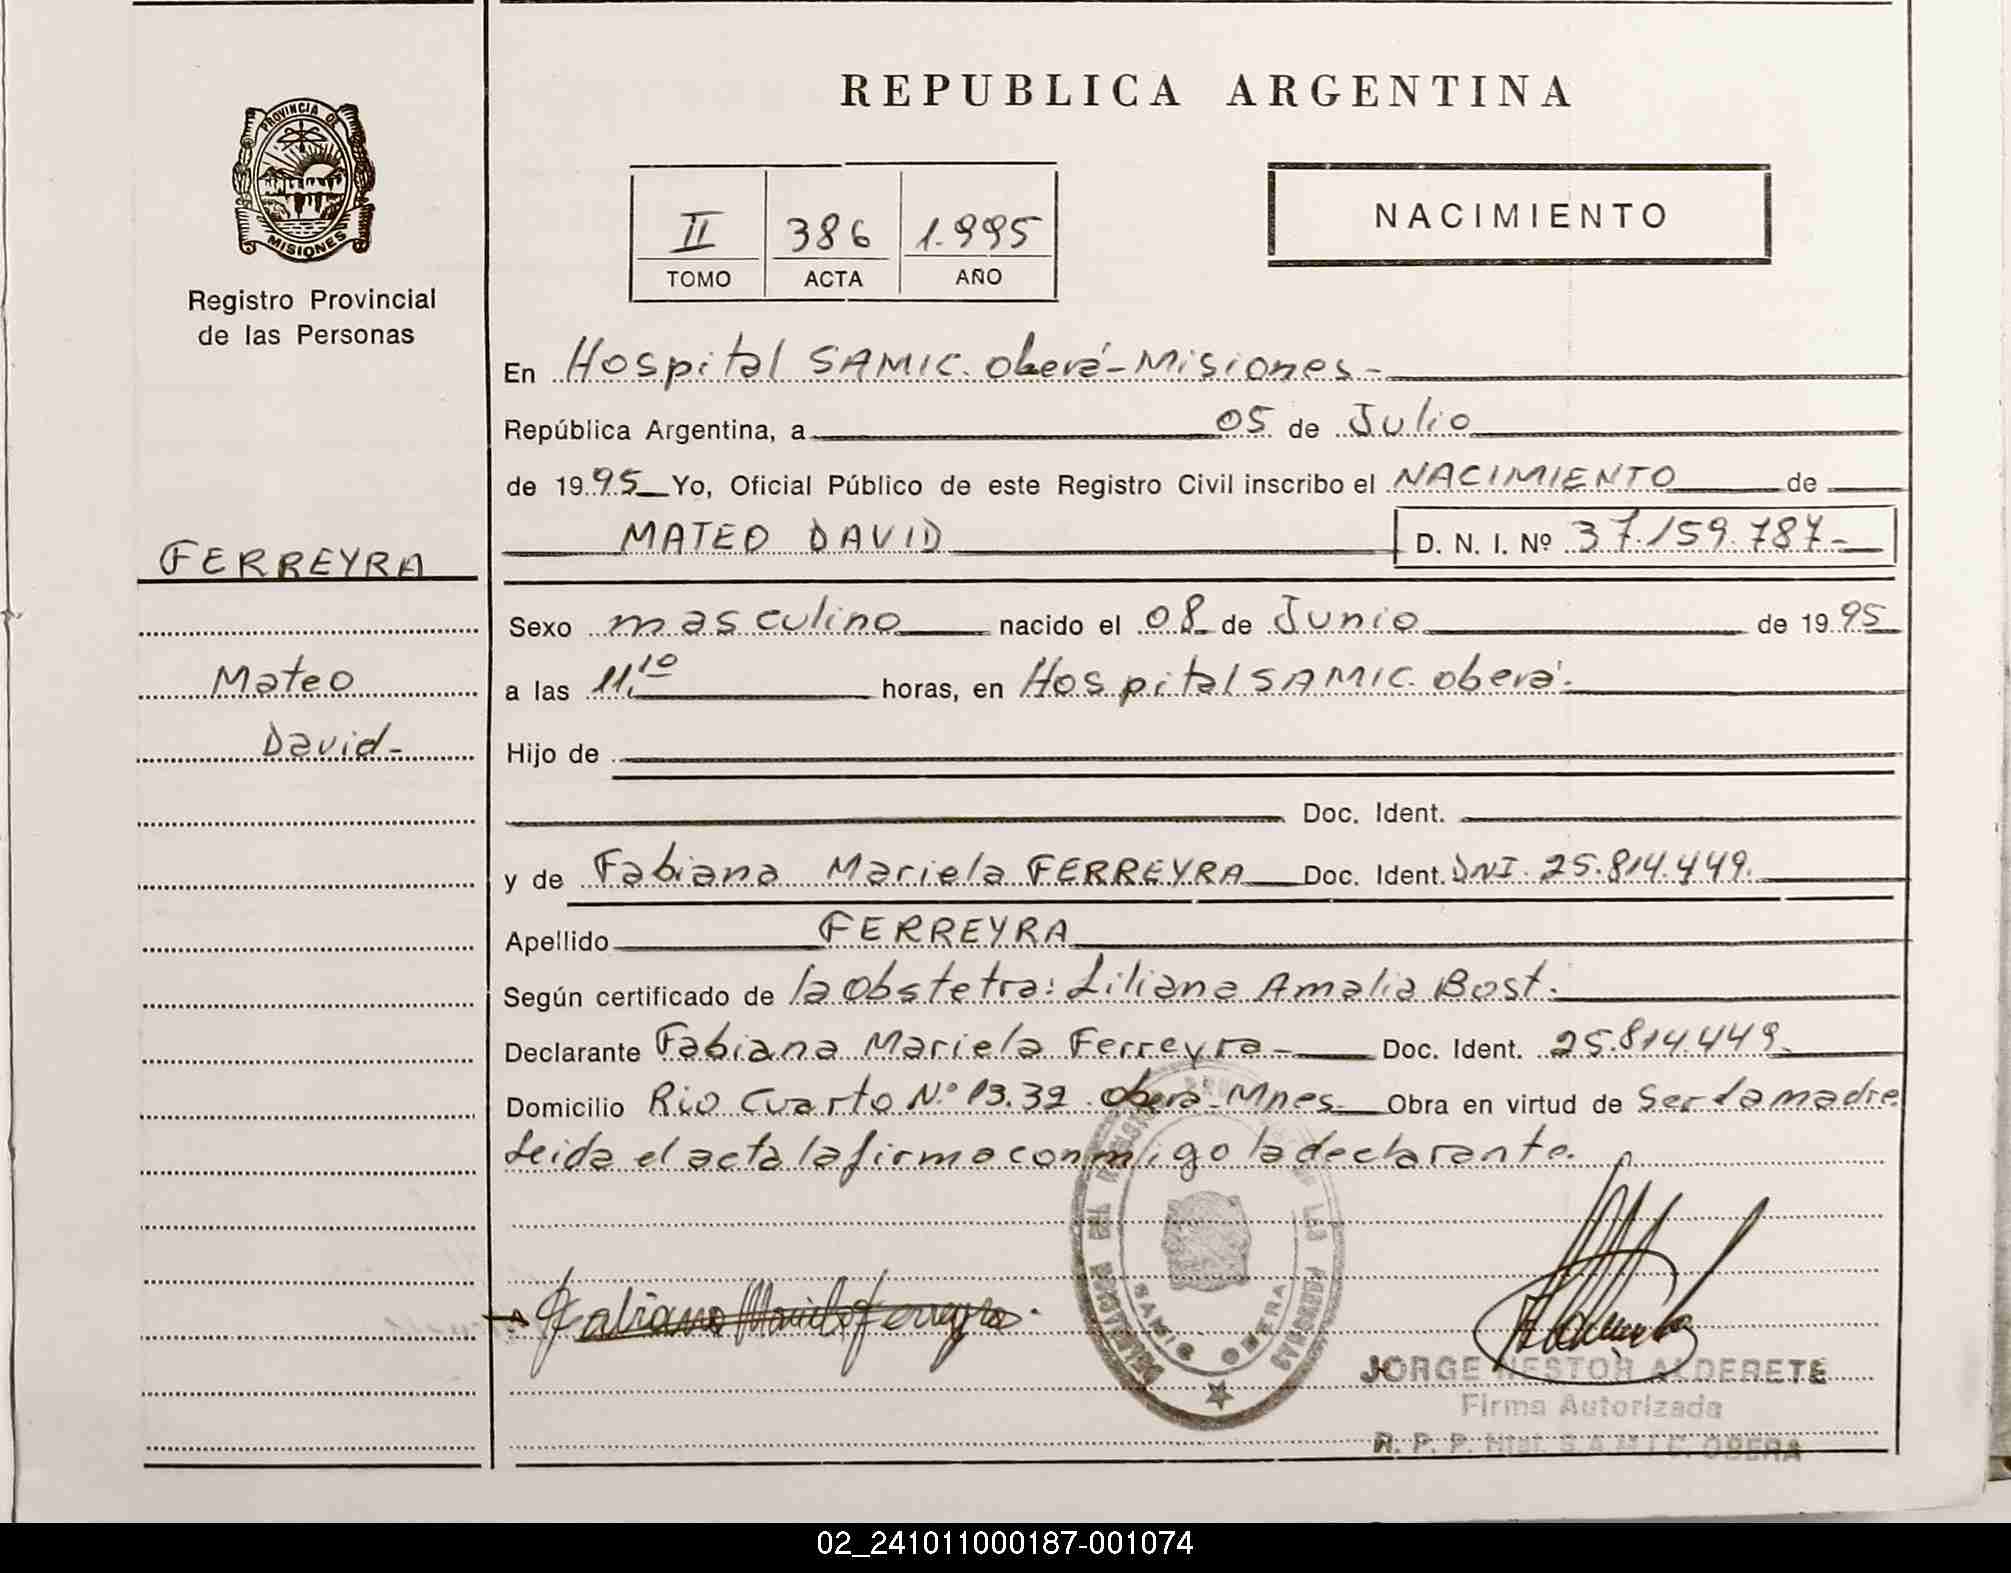 REPUBLICA ARGENTINA
PROVINCIA DE
MISIONES
Registro Provincial
de las Personas
II 386 1.995
TOMO ACTA AÑO
NACIMIENTO
En Hospital SAMIC. Oberá-Misiones-
República Argentina, a 05 de Julio
de 1995 Yo, Oficial Público de este Registro Civil inscribo el NACIMIENTO de
MATEO DAVID D. N. I. Nº 37.159.787-
FERREYRA
Sexo masculino nacido el 08 de Junio de 1995
Mateo
a las 11.10 horas, en Hospital SAMIC. Oberá.
David-
Hijo de
Doc. Ident.
y de Fabiana Mariela FERREYRA Doc. Ident. DNI. 25.814.449.
Apellido FERREYRA
Según certificado de la Obstetra: Liliana Amalia Bost.
Declarante Fabiana Mariela Ferreyra- Doc. Ident. 25.814.449.
Domicilio Rio Cuarto N.º 13.32 Oberá-Mnes. Obra en virtud de Ser La madre
Leida el acta la firma conmigo la declarante.
Fabiana Mariela Ferreyra.
SAMIC OBERA
JORGE NESTOR ALDERETE
Firma Autorizada
R. P. P. Htal. S.A.M.I.C. OBERA
02_241011000187-001074